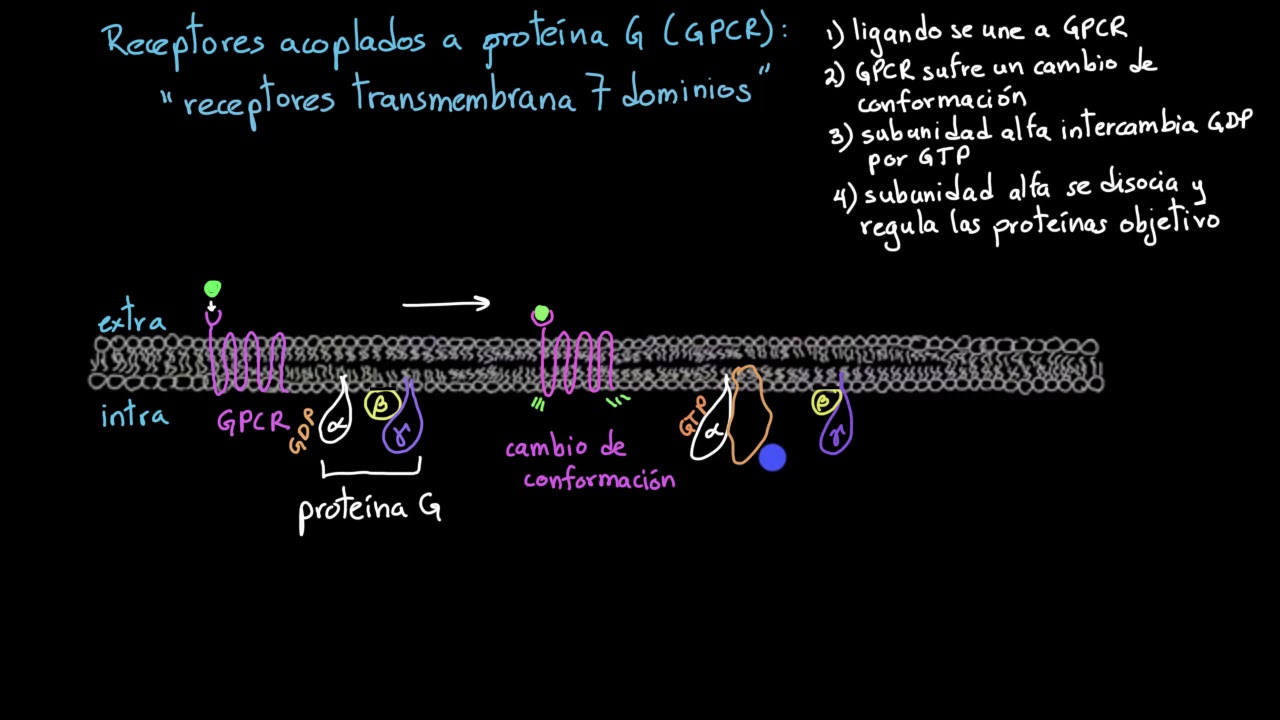 Receptores acoplados a proteína G (GPCR):
"receptores transmembrana 7 dominios"
1) ligando se une a GPCR
2) GPCR sufre un cambio de
conformación
3) subunidad alfa intercambia GDP
por GTP
4) subunidad alfa se disocia y
regula las proteínas objetivo
extra
intra
GPCR
GDP
α
β
γ
proteína G
cambio de
conformación
GTP
α
β
γ